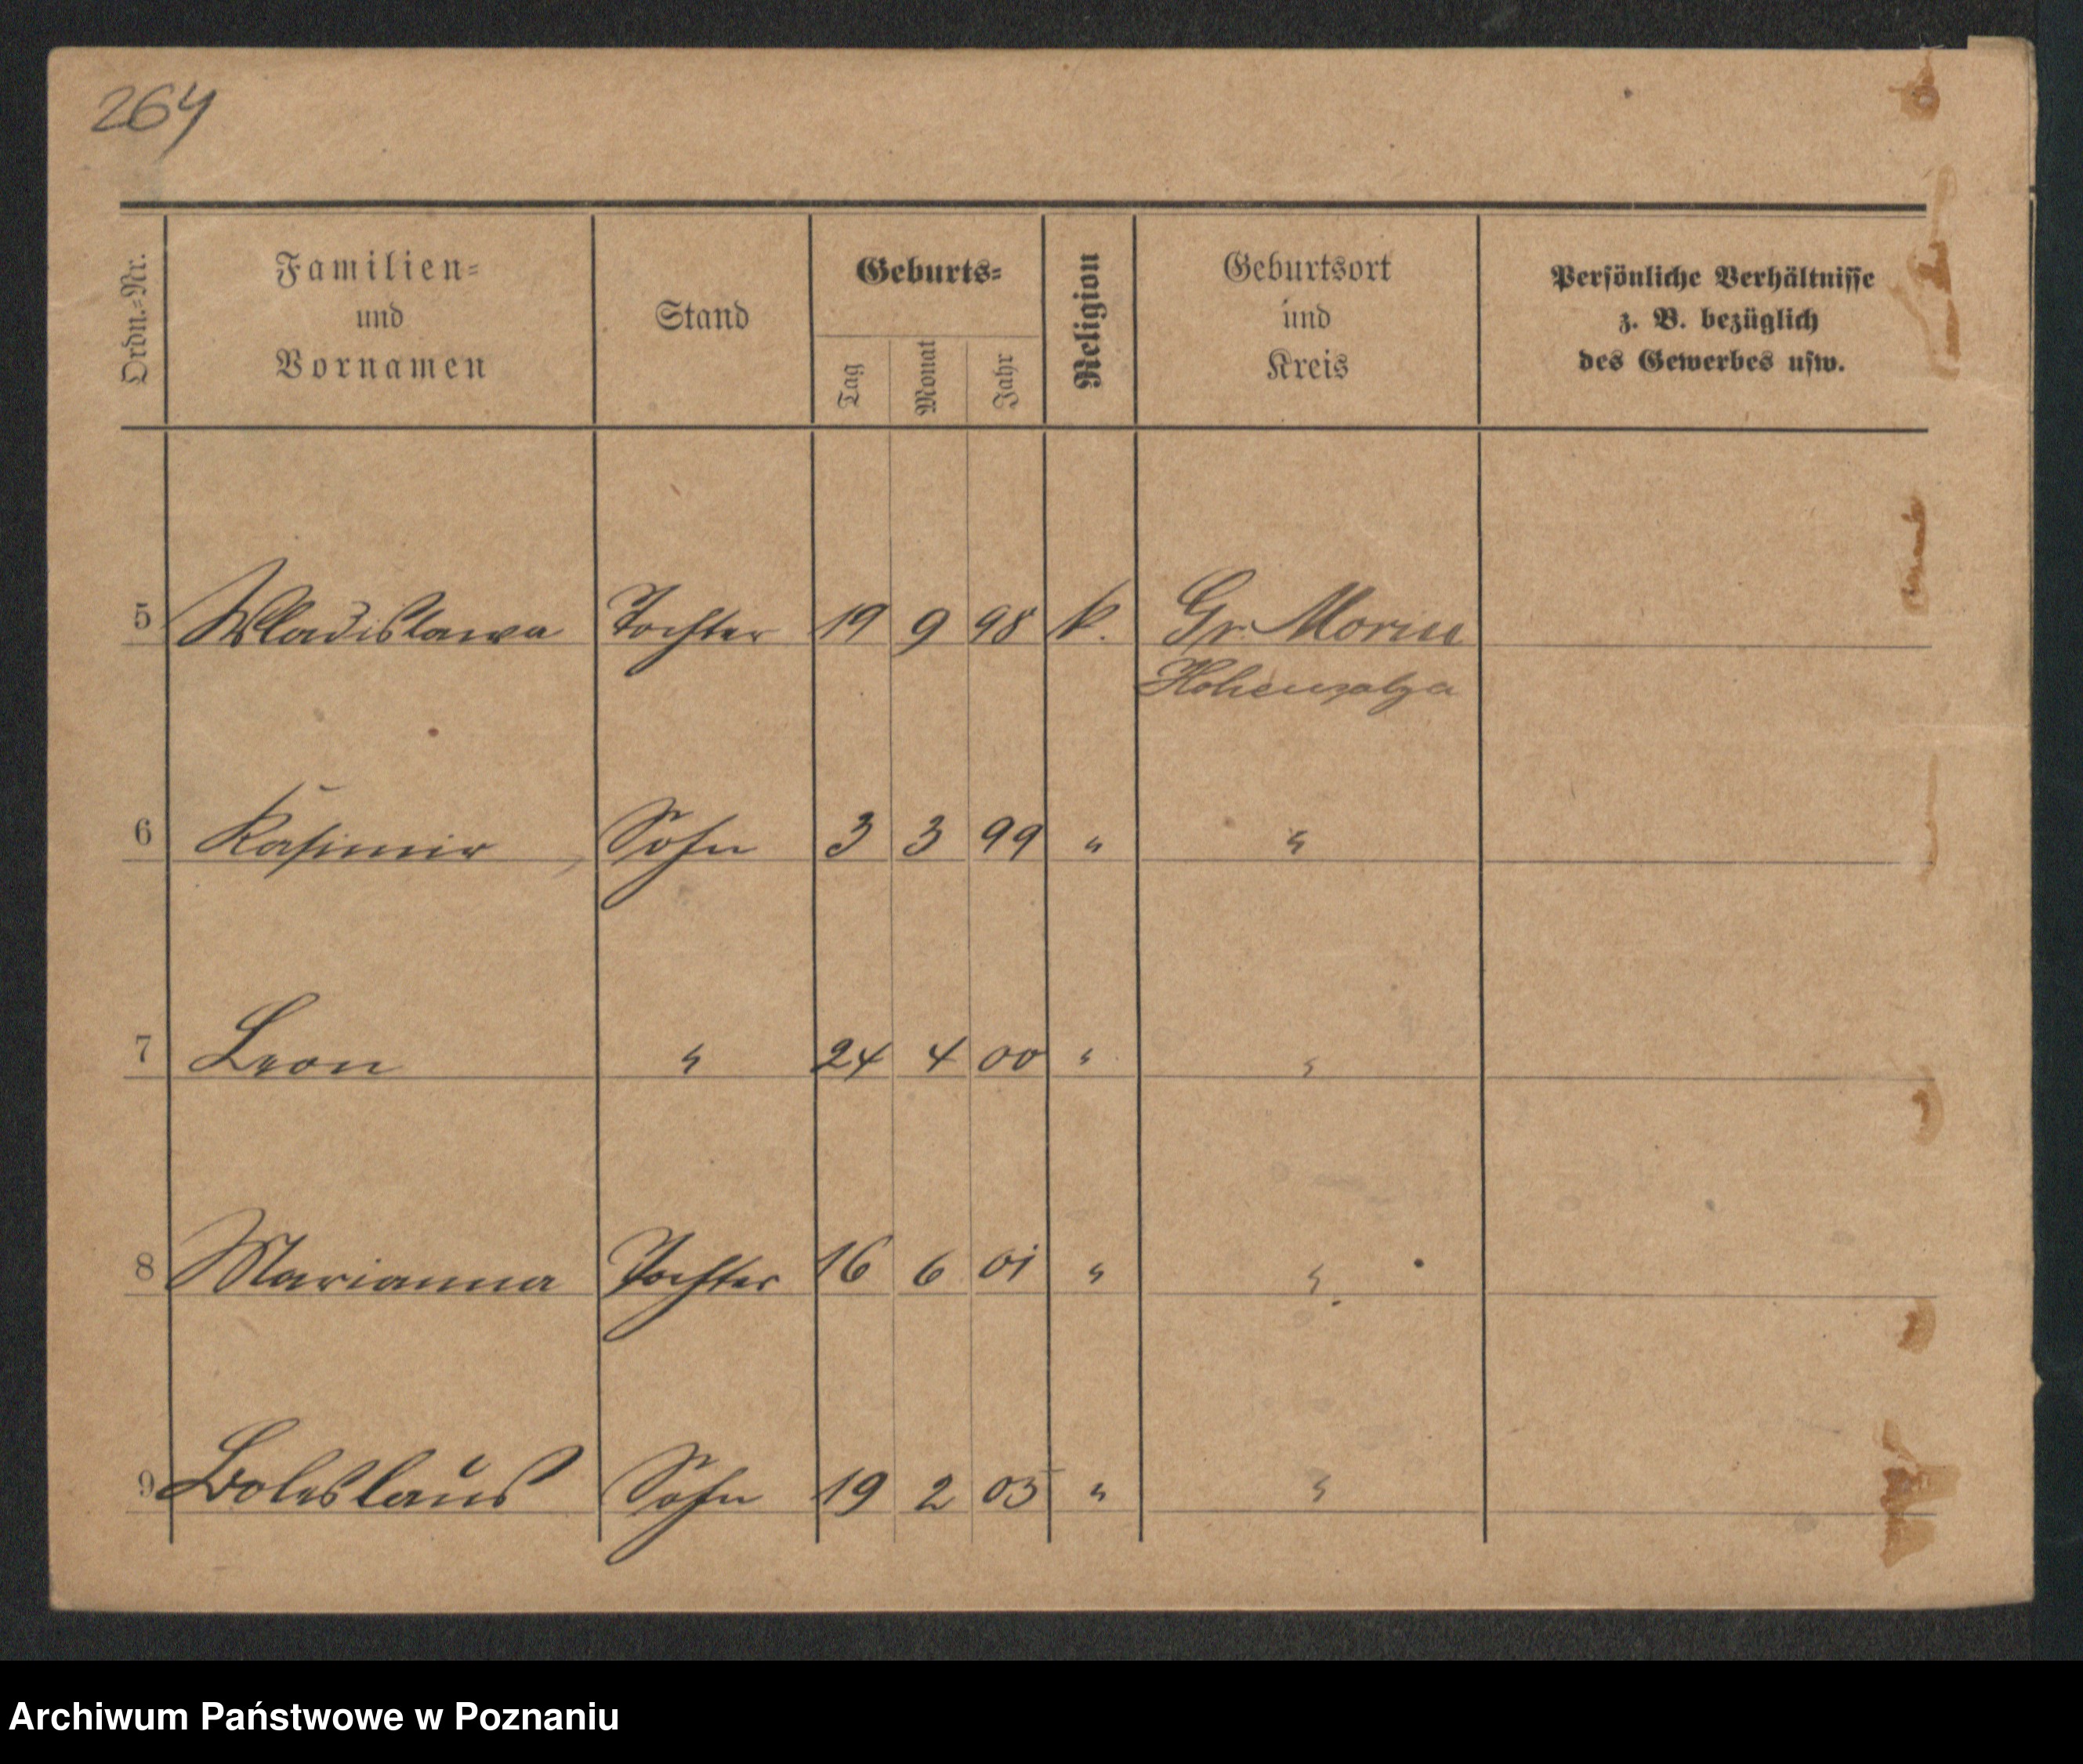 264
Ordn.-Nr.
Familien-
und
Vornamen
Stand
Geburts-
Tag
Monat
Jahr
Religion
Geburtsort
und
Kreis
Persönliche Verhältnisse
z. B. bezüglich
des Gewerbes usw.
5 Wladislawa Tochter 19 9 98 k. Gr. Morin
Hohensalza
6 Kasimir Sohn 3 3 99 " "
7 Leon " 24 4 00 " "
8 Marianna Tochter 16 6 01 " "
9 Boleslaus Sohn 19 2 03 " "
Archiwum Państwowe w Poznaniu